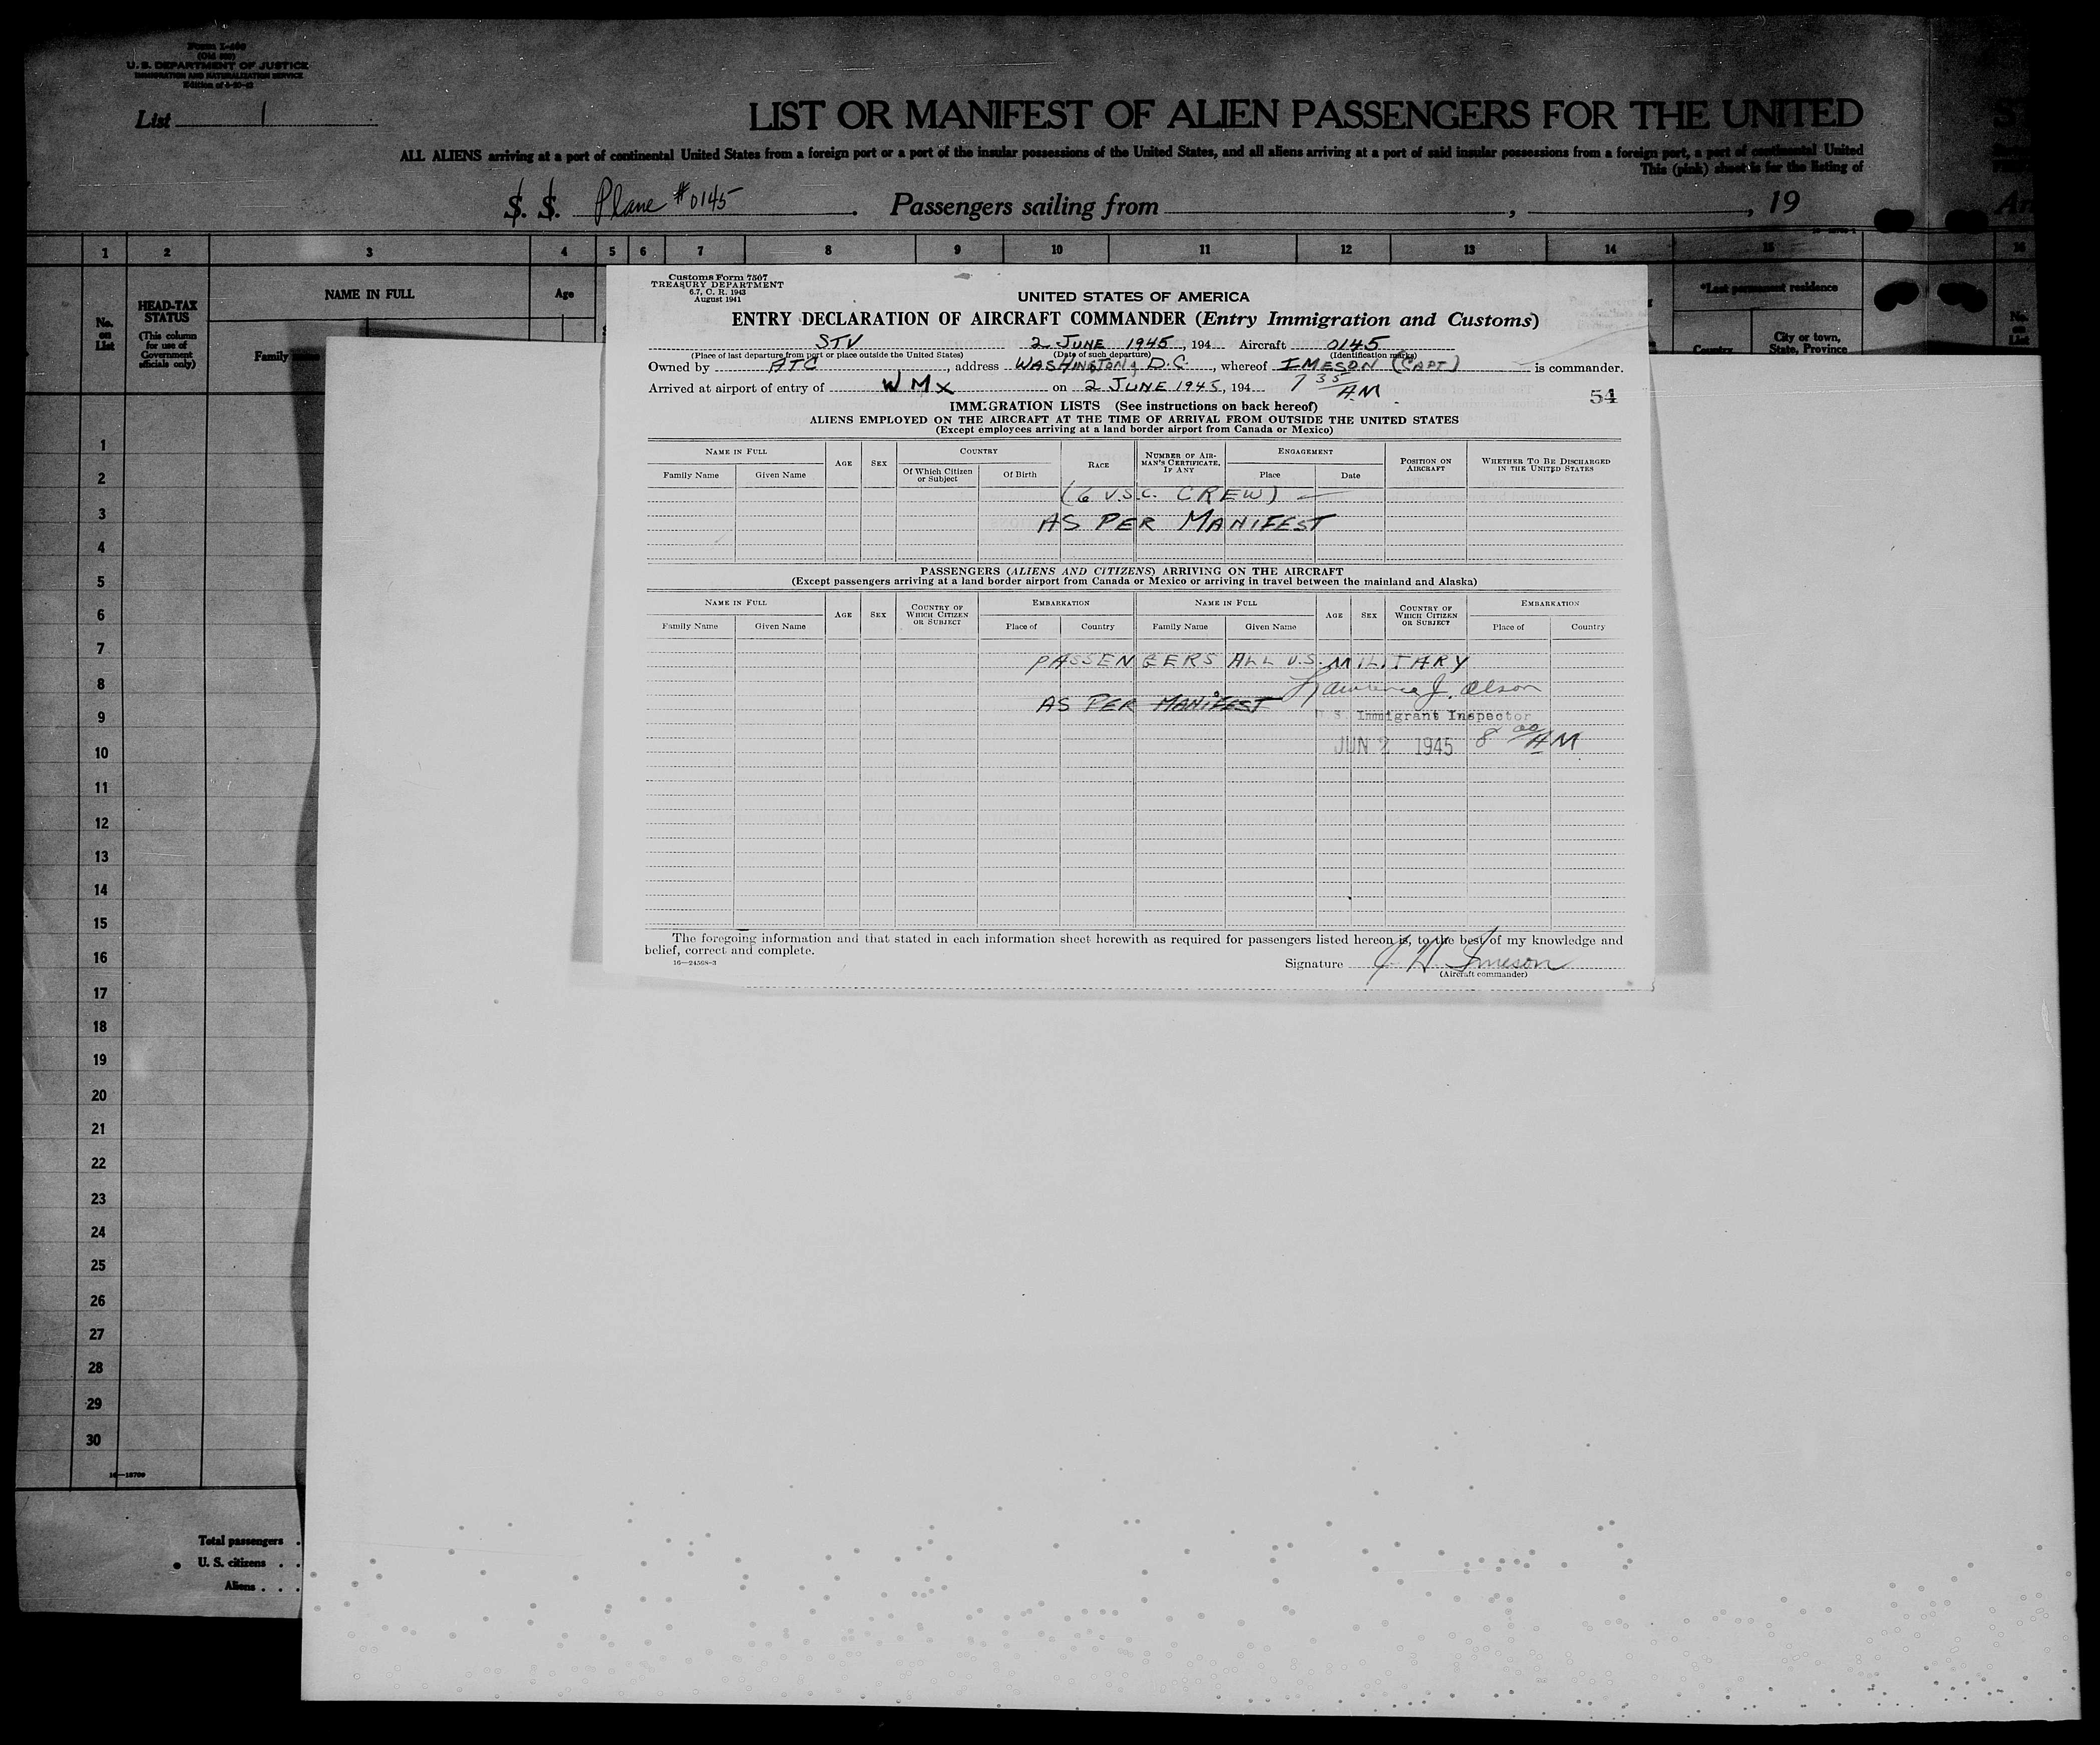 Form I-400
(Old 500)
U. S. DEPARTMENT OF JUSTICE
IMMIGRATION AND NATURALIZATION SERVICE
List 1
LIST OR MANIFEST OF ALIEN PASSENGERS FOR THE UNITED
ALL ALIENS arriving at a port of continental United States from a foreign port or a port of the insular possessions of the United States, and all aliens arriving at a port of said insular possessions from a foreign port, a port of continental United
This (pink) sheet is for the listing of
S. S. Plane #0145. Passengers sailing from , , 19
1 2 3 4 5 6 7 8 9 10 11 12 13 14 15 16
No. on List
HEAD-TAX STATUS
(This column for use of Government officials only)
NAME IN FULL
Age
Family name
*Last permanent residence
Country
City or town, State, Province
Customs Form 7507
TREASURY DEPARTMENT
6.7, C. R. 1943
August 1941
UNITED STATES OF AMERICA
ENTRY DECLARATION OF AIRCRAFT COMMANDER (Entry Immigration and Customs)
STV 2 JUNE 1945, 194 Aircraft 0145
(Place of last departure from port or place outside the United States) (Date of such departure) (Identification marks)
Owned by ATC, address WASHINGTON, D.C., whereof IMESON (CAPT) is commander.
Arrived at airport of entry of WMX on 2 JUNE 1945, 194 7 35 AM
54
IMMIGRATION LISTS (See instructions on back hereof)
ALIENS EMPLOYED ON THE AIRCRAFT AT THE TIME OF ARRIVAL FROM OUTSIDE THE UNITED STATES
(Except employees arriving at a land border airport from Canada or Mexico)
NAME IN FULL AGE SEX COUNTRY RACE NUMBER OF AIRMAN'S CERTIFICATE, IF ANY ENGAGEMENT POSITION ON AIRCRAFT WHETHER TO BE DISCHARGED IN THE UNITED STATES
Family Name Given Name Of Which Citizen or Subject Of Birth Place Date
(6 U.S.C. CREW)
AS PER MANIFEST
PASSENGERS (ALIENS AND CITIZENS) ARRIVING ON THE AIRCRAFT
(Except passengers arriving at a land border airport from Canada or Mexico or arriving in travel between the mainland and Alaska)
NAME IN FULL AGE SEX COUNTRY OF WHICH CITIZEN OR SUBJECT EMBARKATION NAME IN FULL AGE SEX COUNTRY OF WHICH CITIZEN OR SUBJECT EMBARKATION
Family Name Given Name Place of Country Family Name Given Name Place of Country
PASSENGERS ALL U.S. MILITARY
Lawrence J. Olson
AS PER MANIFEST
U.S. Immigrant Inspector
JUN 2 1945 8 00 AM
The foregoing information and that stated in each information sheet herewith as required for passengers listed hereon is, to the best of my knowledge and
belief, correct and complete.
16—24508-3
Signature J. H. Imeson
(Aircraft commander)
1
2
3
4
5
6
7
8
9
10
11
12
13
14
15
16
17
18
19
20
21
22
23
24
25
26
27
28
29
30
16—18709
Total passengers .
U. S. citizens . .
Aliens . . .